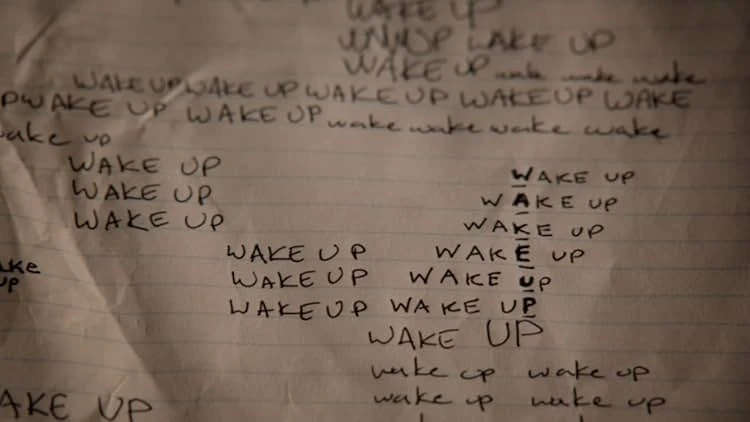 WAKE UP
WAKE UP
WAKE UP wake wake wake
WAKE UP WAKE UP WAKE UP WAKE UP WAKE
WAKE UP WAKE UP wake wake wake wake
wake up
WAKE UP WAKE UP
WAKE UP WAKE UP
WAKE UP WAKE UP
WAKE UP WAKE UP
up WAKE UP WAKE UP
WAKE UP WAKE UP
WAKE UP
wake up wake up
WAKE UP wake up wake up